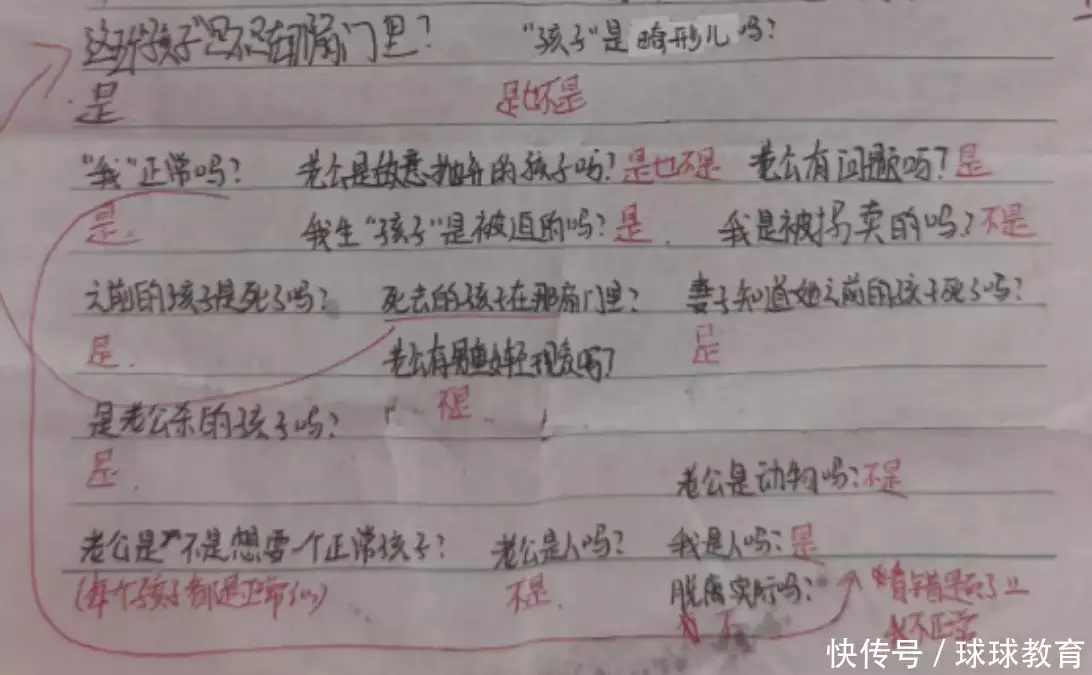 这些"孩子"是不是在那扇门里? "孩子"是畸形儿吗?
是 是也不是
"我"正常吗? 老公是故意抛弃的孩子吗? 是也不是 老公有问题吗? 是
是. 我生"孩子"是被迫的吗? 是. 我是被拐卖的吗? 不是
之前的孩子是死了吗? 死去的孩子在那扇门里? 妻子知道她之前的孩子死了吗?
是. 老公有 吗? 是
是老公杀的孩子吗? 不是.
是. 老公是动物吗? 不是
老公是不是想要一个正常孩子? 老公是人吗? 我是人吗? 是
(每个孩子都是正常的) 不是. 脱离实际吗?
不 不正常
快传号 / 球球教育